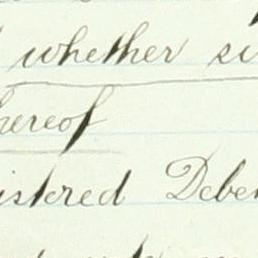 whether su
hereof
istered Deben